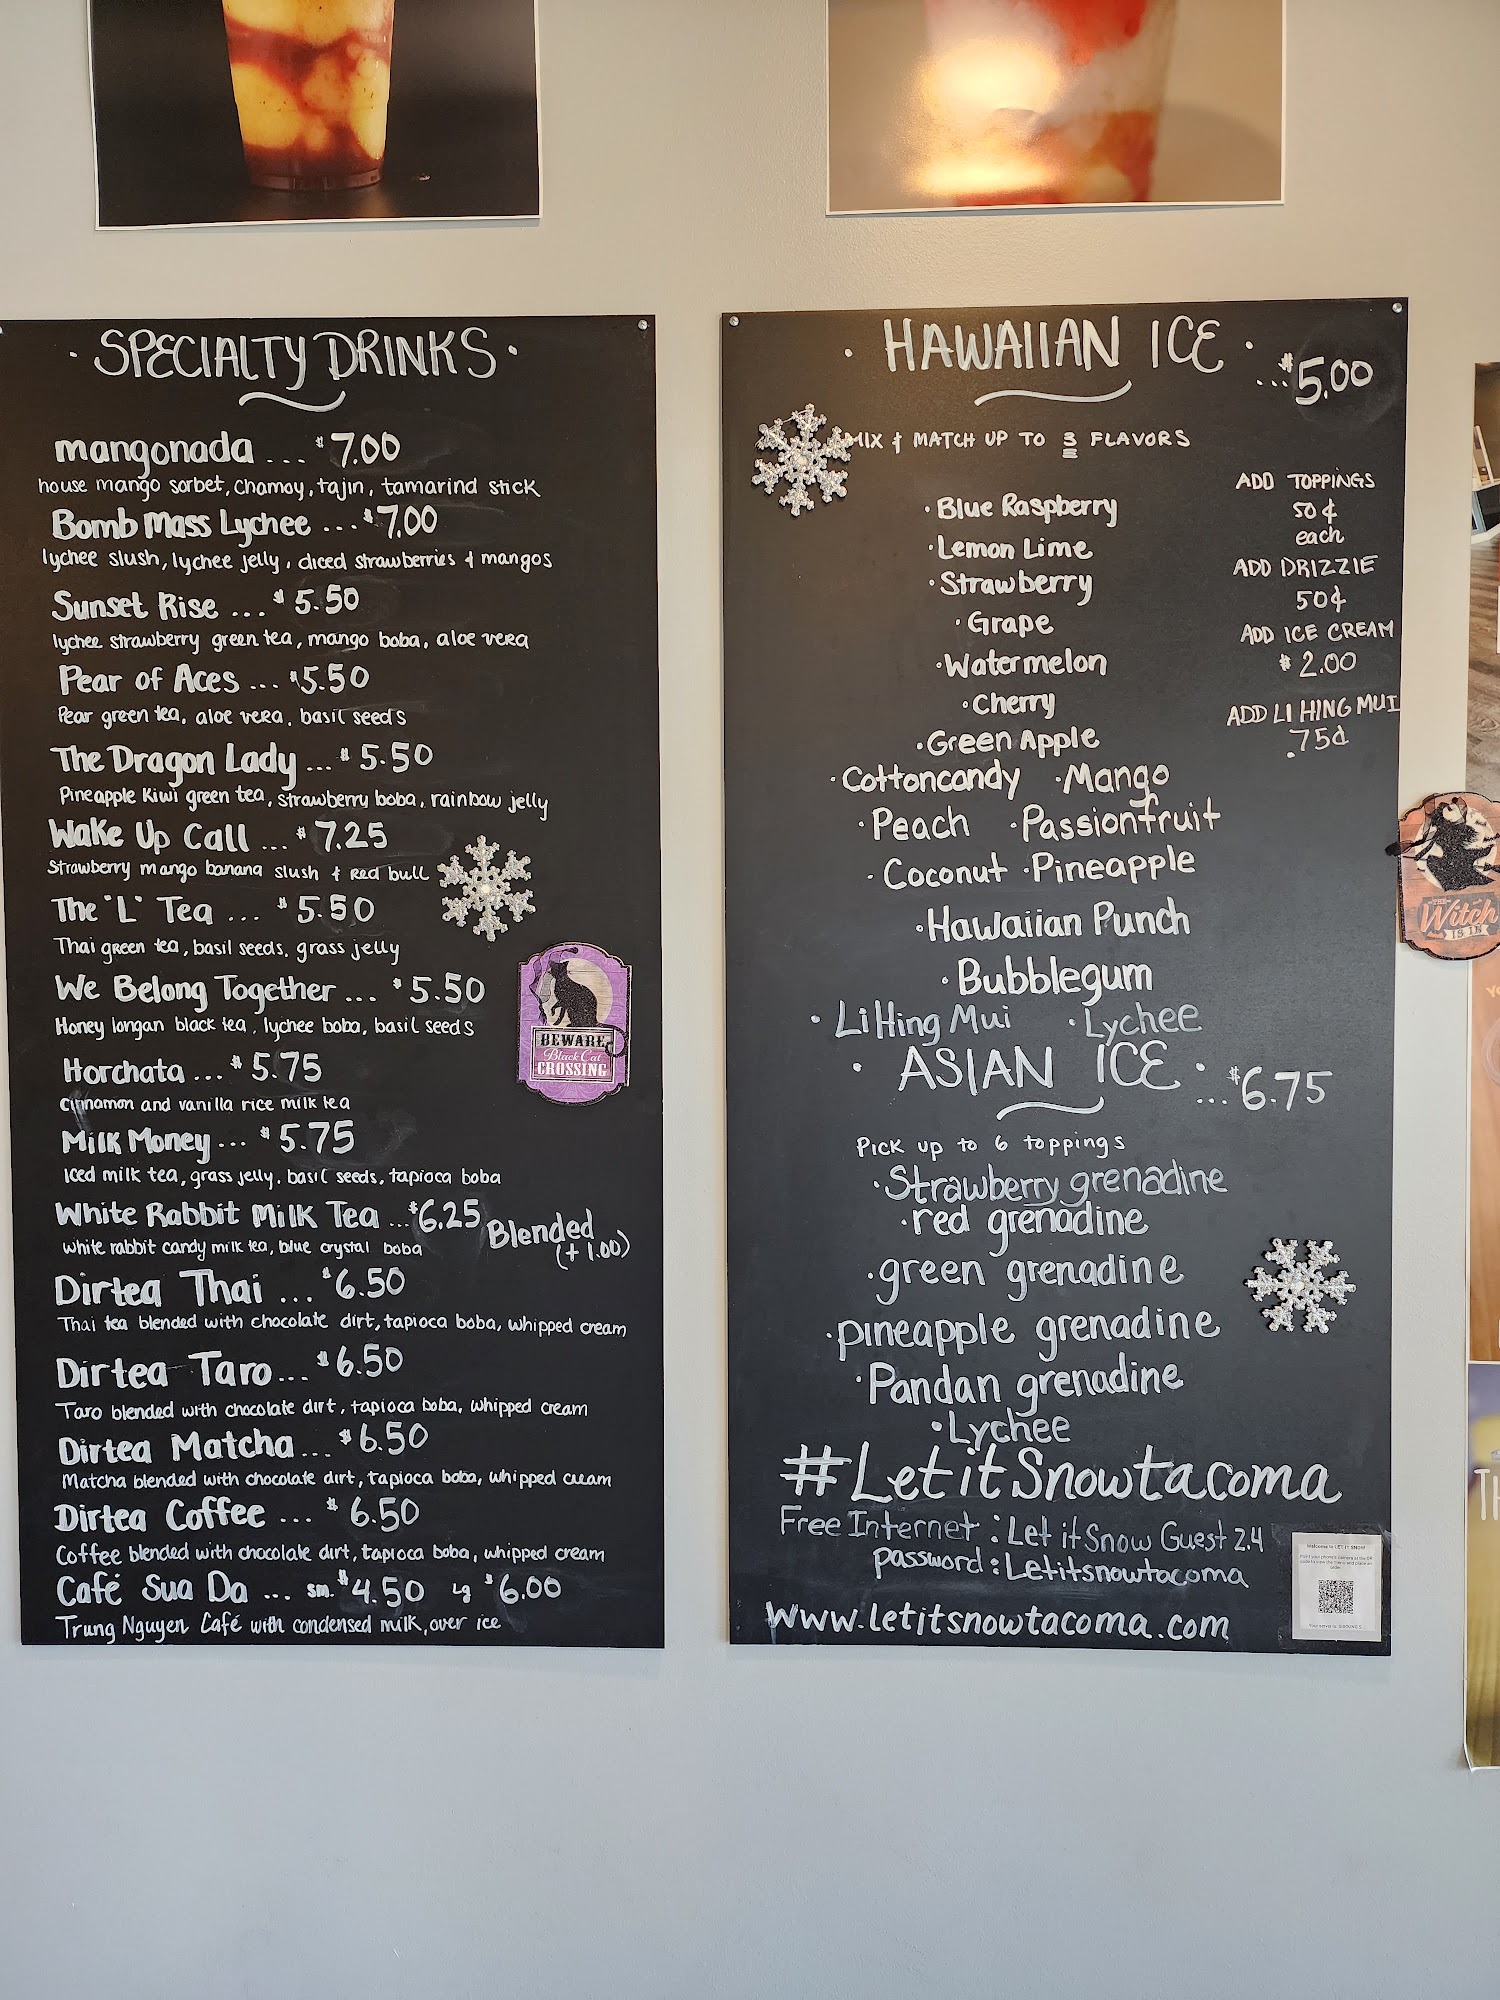 · SPECIALTY DRINKS ·
mangonada ... $7.00
house mango sorbet, chamoy, tajin, tamarind stick
Bomb Mass Lychee ... $7.00
lychee slush, lychee jelly, diced strawberries & mangos
Sunset Rise ... $5.50
lychee strawberry green tea, mango boba, aloe vera
Pear of Aces ... $5.50
Pear green tea, aloe vera, basil seeds
The Dragon Lady ... $5.50
Pineapple Kiwi green tea, strawberry boba, rainbow jelly
Wake Up Call ... $7.25
Strawberry mango banana slush & Red bull
The "L" Tea ... $5.50
Thai green tea, basil seeds, grass jelly
We Belong Together ... $5.50
Honey longan black tea, lychee boba, basil seeds
Horchata ... $5.75
Cinnamon and vanilla rice milk tea
Milk Money ... $5.75
Iced milk tea, grass jelly, basil seeds, tapioca boba
White Rabbit Milk Tea ... $6.25 Blended (+ 1.00)
white rabbit candy milk tea, blue crystal boba
Dirtea Thai ... $6.50
Thai tea blended with chocolate dirt, tapioca boba, whipped cream
Dirtea Taro ... $6.50
Taro blended with chocolate dirt, tapioca boba, whipped cream
Dirtea Matcha ... $6.50
Matcha blended with chocolate dirt, tapioca boba, whipped cream
Dirtea Coffee ... $6.50
Coffee blended with chocolate dirt, tapioca boba, whipped cream
Café Sua Da ... sm. $4.50 lg $6.00
Trung Nguyen Café with condensed milk, over ice
BEWARE
Black Cat
CROSSING
· HAWAIIAN ICE · ... $5.00
MIX & MATCH UP TO 3 FLAVORS
· Blue Raspberry
· Lemon Lime
· Strawberry
· Grape
· Watermelon
· Cherry
· Green Apple
· Cottoncandy · Mango
· Peach · Passionfruit
· Coconut · Pineapple
· Hawaiian Punch
· Bubblegum
· Li Hing Mui · Lychee
ADD TOPPINGS
50¢
each
ADD DRIZZIE
50¢
ADD ICE CREAM
$2.00
ADD LI HING MUI
.75¢
· ASIAN ICE · ... $6.75
Pick up to 6 toppings
· Strawberry grenadine
· red grenadine
· green grenadine
· pineapple grenadine
· Pandan grenadine
· Lychee
#LetitSnowtacoma
Free Internet : Let it Snow Guest 2.4
password : Letitsnowtacoma
www.letitsnowtacoma.com
Welcome to LET IT SNOW
THE
Witch
IS IN